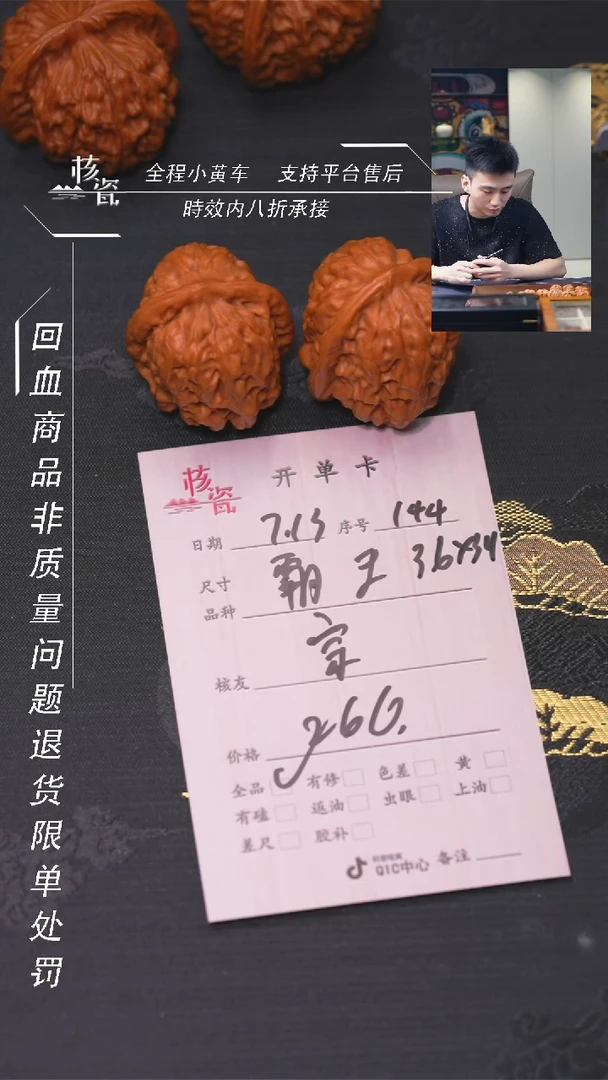 核瓷
全程小黄车 支持平台售后
時效内八折承接
回血商品非质量问题退货限单处罚
核瓷 开单卡
日期 7.13 序号 144
尺寸
品种 霸王 36x34
核友 宗
价格 260.
全品 有修 色差 黄
有磕 返油 虫眼 上油
差尺 胶补
QIC中心 备注